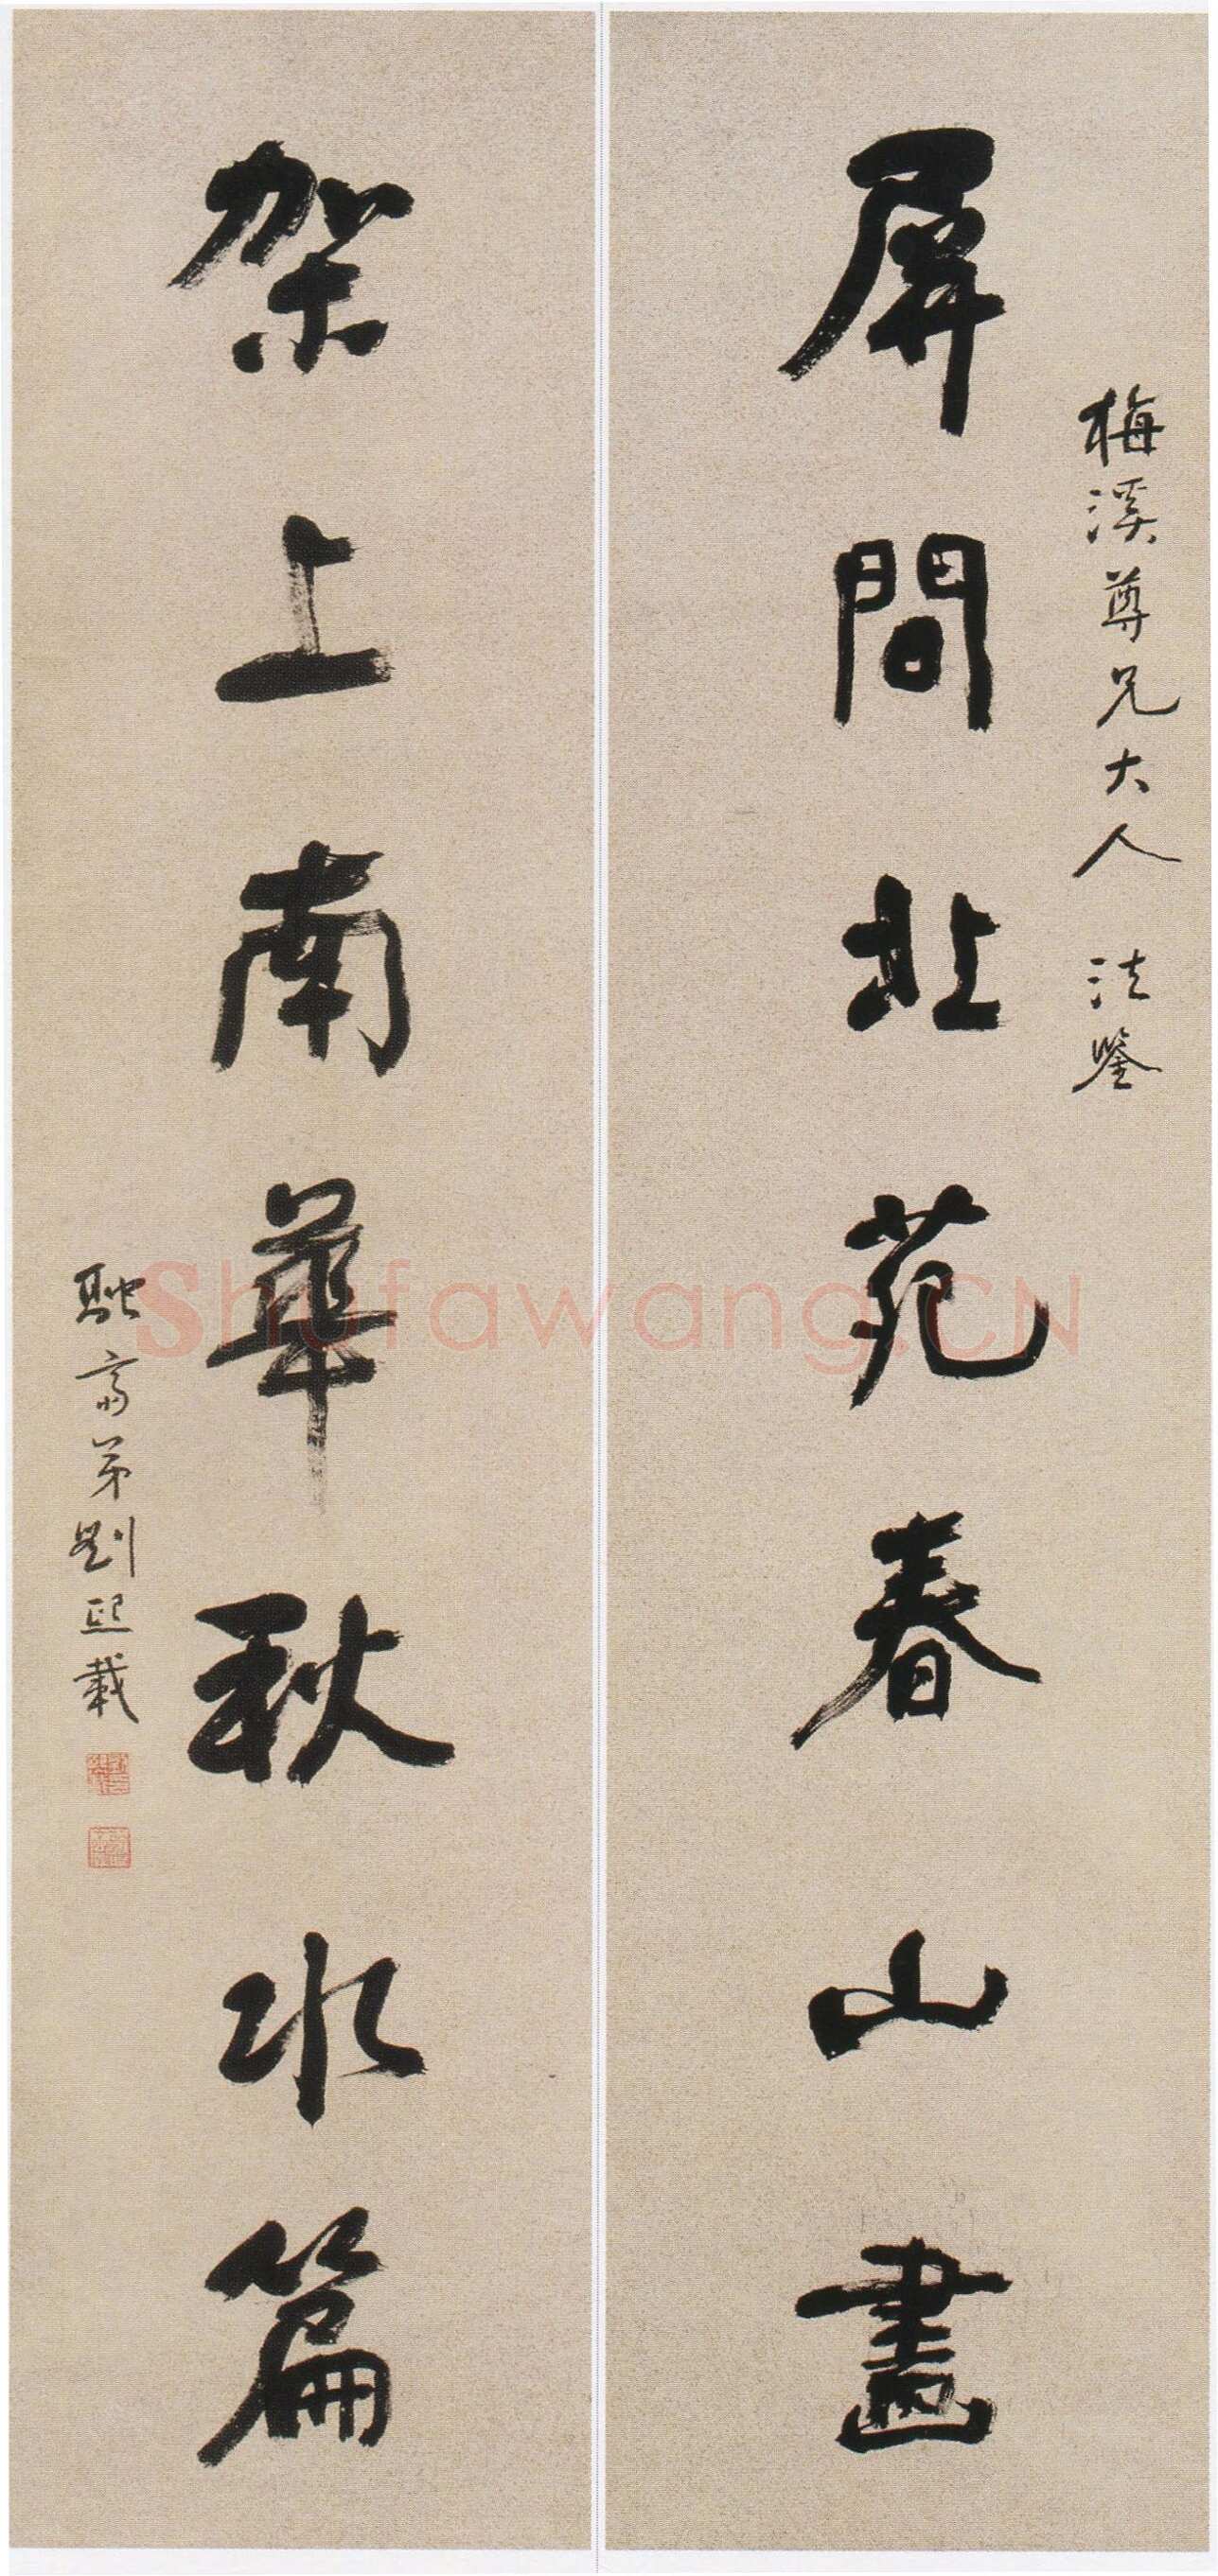 梅溪尊兄大人 法鑒
屏間北苑春山畫
架上南華秋水篇
融齋弟劉熙載
Shufawang.CN